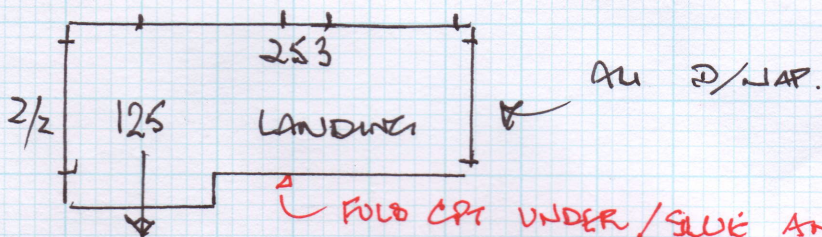 253
ALL D/NAP.
2/2 125 LANDING
FOLD CPT UNDER / GLUE